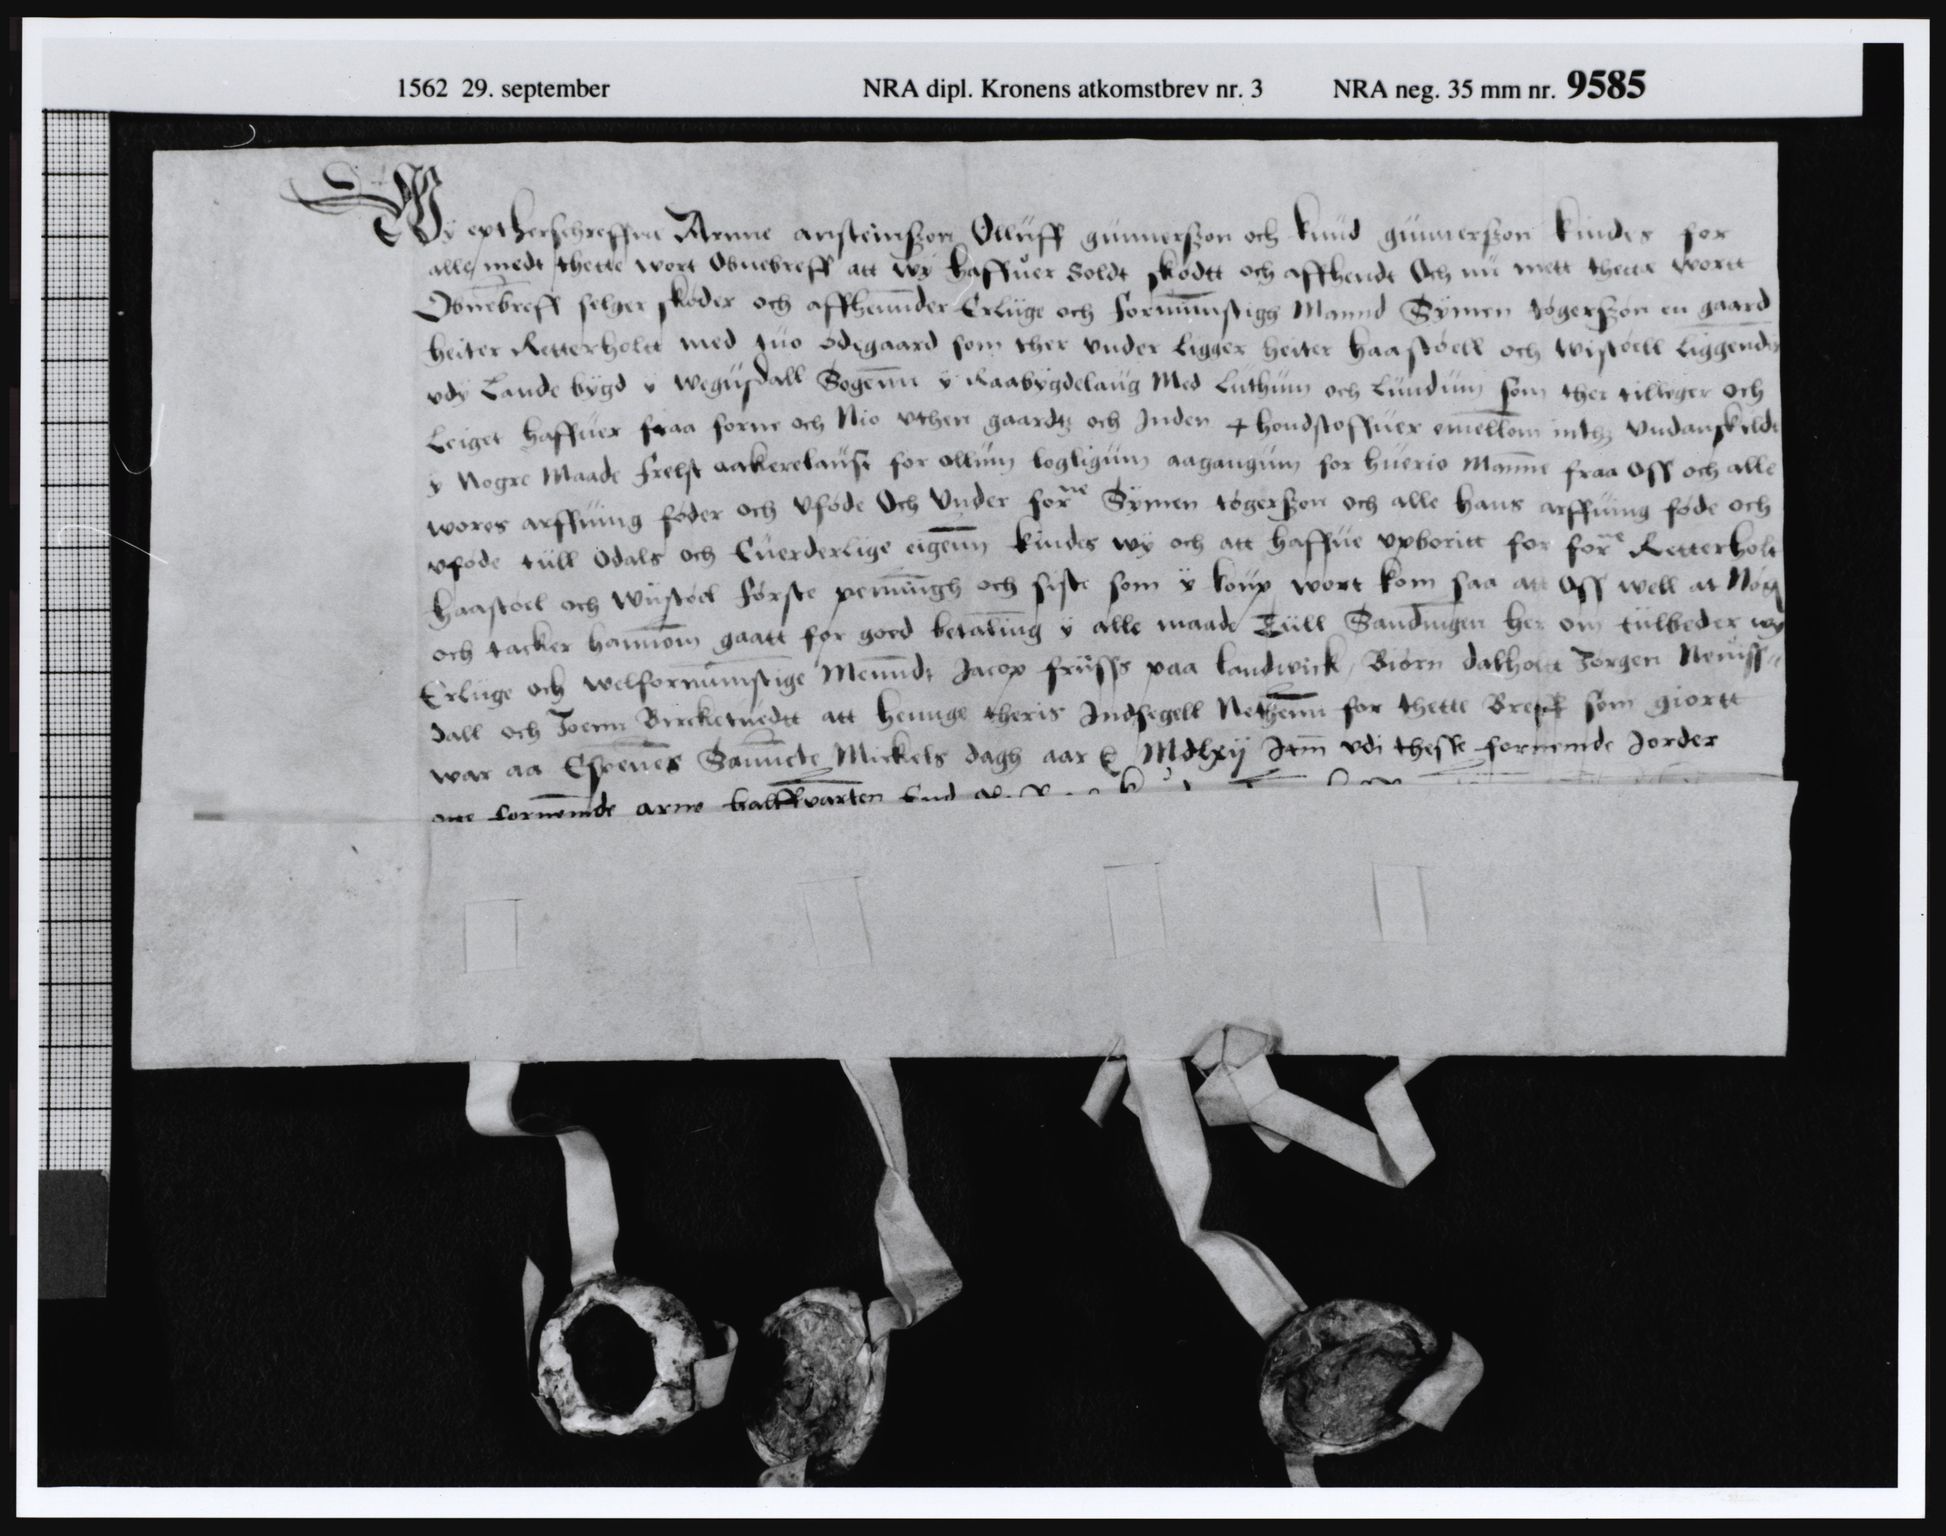 1562 29. september NRA dipl. Kronens atkomstbrev nr. 3 NRA neg. 35 mm nr. 9585
Wy epther schreffne Arnne ansteinszon Olluff gunnerszon och knud gunnerszon kindes for
alle medt thette wort Obnebreff att wy haffuer soldt skødtt och affhendt Och nu mett thette wortt
Obnebreff selger skøder och affhennder Erlige och fornumstigg Mannd Symen togerszon en gaard
heiter Retterholtt med tuo ødegaard som ther vnder ligger heiter haastoell och wistoell liggendis
vdy Lande bygd y wegusdall Sogenn y Raabygdelaug Med Luthum och Lundum som ther tilliger och
Leiget haffuer fraa forne och Nio vthen gaardtz och Inden + hondstoffuer emellom inthz vndanskildt
y Nogre Maade frelst aakerelaust for ollum logligum aagangum for huerio Manne fraa Oss och alle
wores arffuing føder och vføde Och vnder forne Symen togerszon och alle hans arffuing føde och
vføde till Odals och Euerderlige eigenn kindes wy och att haffue vpboritt for forne Retterholt
haastoel och wistoel første penningh och siste som y koup wort kom saa att Oss well at Nøger
och tacker hannom gaatt for goed betaling y alle maade Till Sandingen her om tilbeder wy
Erlige och welfornumstige Menndt Jacop frusss paa landwick, Biørn dalholtt Jørgen Neuiss-
dall och Joenn Birketuedtt att henge theris Indsegell Nethenn for thette Breff som giortt
war aa Sanncte Mickels dagh aar Mdlxij Jtm vdi thesse fornemde Jorder
fornemde arne halffparten